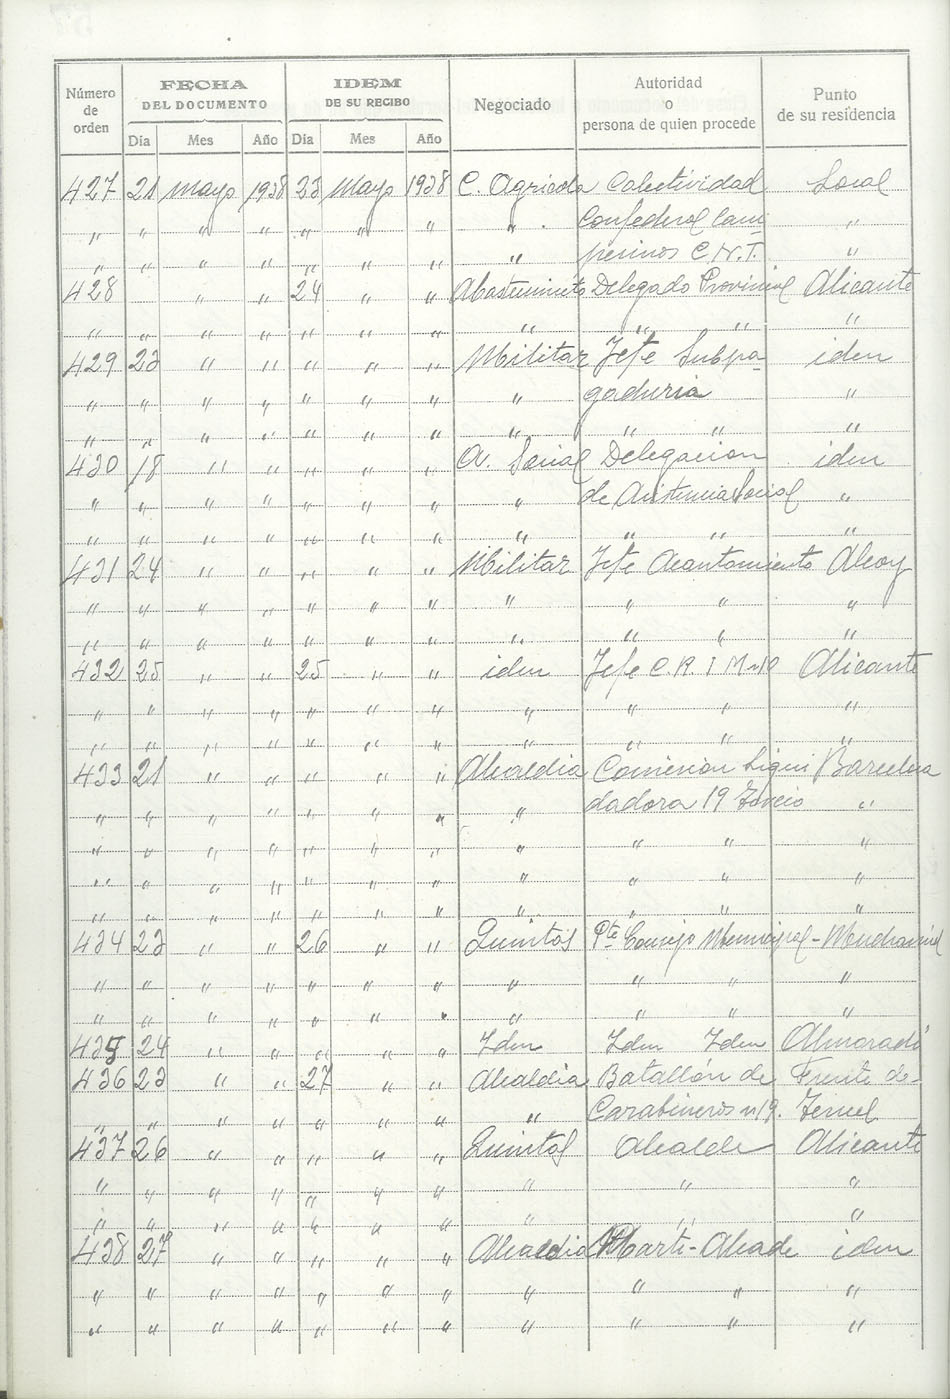 Número de orden | FECHA DEL DOCUMENTO | IDEM DE SU RECIBO | Negociado | Autoridad o persona de quien procede | Punto de su residencia
Día | Mes | Año | Día | Mes | Año
427 21 Mayo 1938 23 Mayo 1938 C. Agricola Colectividad Local
" " " " " " " " Confederal Cam- "
" " " " " " " " pesinos C.N.T. "
428 " " 24 " " Abastecimiento Delegado Provincial Alicante
" " " " " " " " " " "
429 23 " " " " " Militar Jefe Subpa- idem
" " " " " " " " gaduria "
" " " " " " " " " " "
430 18 " " " " " A. Social Delegacion idem
" " " " " " " " de Asistencia Social "
" " " " " " " " " " "
431 24 " " " " " Militar Jefe Acantonamiento Alcoy
" " " " " " " " " " "
" " " " " " " " " " "
432 25 " " 25 " " idem Jefe C. R. I M Alicante
" " " " " " " " " " "
" " " " " " " " " " "
433 21 " " " " " Alcaldia Comision Liqui Barcelona
" " " " " " " " dadora 19 Tercio "
" " " " " " " " " " "
" " " " " " " " " " "
" " " " " " " "
434 23 " " 26 " " Quintas Pte Consejo Municipal - Muchamiel
" " " " " " " " " " "
" " " " " " " " " " "
435 24 " " " " " Idem Idem Idem Almoradí
436 23 " " 27 " " Alcaldia Batallón de Frente de-
" " " " " " " " Carabineros n 19. Teruel
437 26 " " " " " Quintas Alcalde Alicante
" " " " " " " " " "
" " " " " " " " " "
438 27 " " " " " Alcaldia Marti-Alcade idem
" " " " " " " " " " "
" " " " " " " " " " "